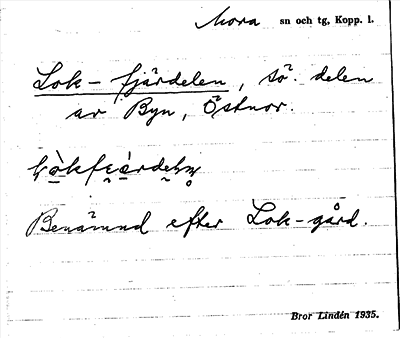 Mora sn och tg, Kopp. l.
Lok-fjärdelen, sö. delen
av Byn, Östnor.
Benämnd efter Lok-gård.
Bror Lindén 1935.